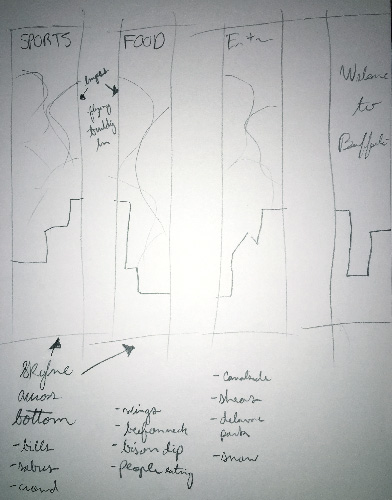 SPORTS
FOOD
Welcome
to
Buffalo
flying
Skyline
across
bottom
- bills
- sabres
- crowd
- wings
- beef on weck
- bison dip
- people eating
- canalside
- sheas
- delaware
park
- snow